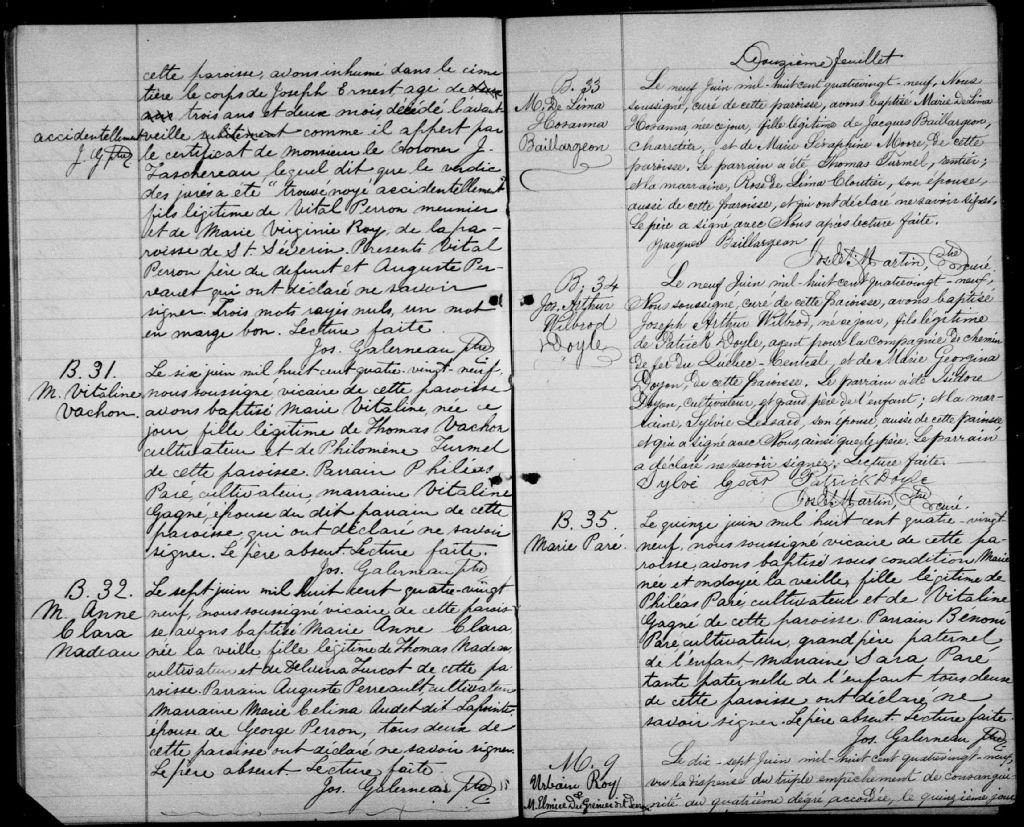 cette paroisse, avons inhumé dans le cime
tière le corps de Joseph Ernest agé de
trois ans et deux mois décédé l'avant
accidentellement
J. G ptre
veille subitement comme il appert par
le certificat de monsieur le Coroner J.
Taschereau lequel dit que le verdic
des jurés a été "trouvé noyé accidentellement"
fils légitime de Vital Perron meunier
et de Marie Virginie Roy, de la pa-
roisse de St. Séverin. Presents Vital
Perron père du defunt et Auguste Per-
reault qui ont déclaré ne savoir
signer. Trois mots rayés nuls, un mot
en marge bon. Lecture faite.
Jos. Galerneau ptre
B. 31.
M. Vitaline
Vachon.
Le six juin mil huit cent quatre-vingt-neuf,
nous soussigné vicaire de cette paroisse
avons baptisé Marie Vitaline, née ce
jour fille légitime de Thomas Vachon
cultivateur et de Philomène Turmel
de cette paroisse. Parrain Philéas
Paré cultivateur, marraine Vitaline
Gagné, épouse du dit parrain de cette
paroisse qui ont déclaré ne savoir
signer. Le père absent. Lecture faite.
Jos. Galerneau ptre
B. 32.
M. Anne
Clara
Nadeau
Le sept juin mil huit cent quatre-vingt
neuf, nous soussigné vicaire de cette parois-
se, avons baptisé Marie Anne Clara,
née la veille fille légitime de Thomas Nadeau
cultivateur et de Delvina Turcot de cette pa-
roisse. Parrain Auguste Perreault cultivateur
Marraine Marie Celina Audet dit Lapointe
épouse de George Perron, tous deux de
cette paroisse ont déclaré ne savoir signer.
Le père absent. Lecture faite
Jos. Galerneau ptre
Douzième feuillet
B. 33
M. De Lima
Hosanna
Baillargeon
Le neuf Juin mil-huit cent quatrevingt-neuf, Nous
soussigné, curé de cette paroisse, avons baptisé Marie de Lima
Hosanna, née ce jour, fille légitime de Jacques Baillargeon,
charretier, et de Marie Séraphine Moore, de cette
paroisse. Le parrain a été Thomas Turmel, rentier;
et la marraine, Rose de Lima Cloutier, son épouse,
aussi de cette paroisse, et qui ont déclaré ne savoir signer.
Le père a signé avec Nous après lecture faite.
Jacques Baillargeon
Jos. Et. Martin, Ptre
curé.
B. 34
Jos. Arthur
Wilbrod
Doyle
Le neuf Juin, mil-huit cent quatrevingt-neuf,
Nous soussigné, curé de cette paroisse, avons baptisé
Joseph Arthur Wilbrod, né ce jour, fils légitime
de Patrick Doyle, agent pour la compagnie de chemin
de fer du Québec-Central, et de Marie Georgina
Doyon, de cette paroisse. Le parrain a été Isidore
Doyon, cultivateur, et grand père de l'enfant; et la mar-
raine, Sylvie Lessard, son épouse, aussi de cette paroisse
et qui a signé avec Nous, ainsi que le père. Le parrain
a déclaré ne savoir signer. Lecture faite.
Patrick Doyle
Jos. Et. Martin, Ptre
curé.
B. 35.
Marie Paré.
Le quinze juin mil huit cent quatre-vingt-
neuf, nous soussigné vicaire de cette pa-
roisse, avons baptisé sous condition Marie
née et ondoyée la veille, fille légitime de
Philéas Paré cultivateur et de Vitaline
Gagné de cette paroisse. Parrain Bénoni
Paré cultivateur, grand père paternel
de l'enfant Marraine Sara Paré
tante paternelle de l'enfant tous deux
de cette paroisse ont déclaré ne
savoir signer. Le père absent. Lecture faite.
Jos. Galerneau ptre
M. 9
Urbain Roy
Le dix-sept Juin mil-huit cent quatrevingt-neuf,
vu la dispense du triple empêchement de consangui-
nité du quatrième dégré accordée, le quinzième jour